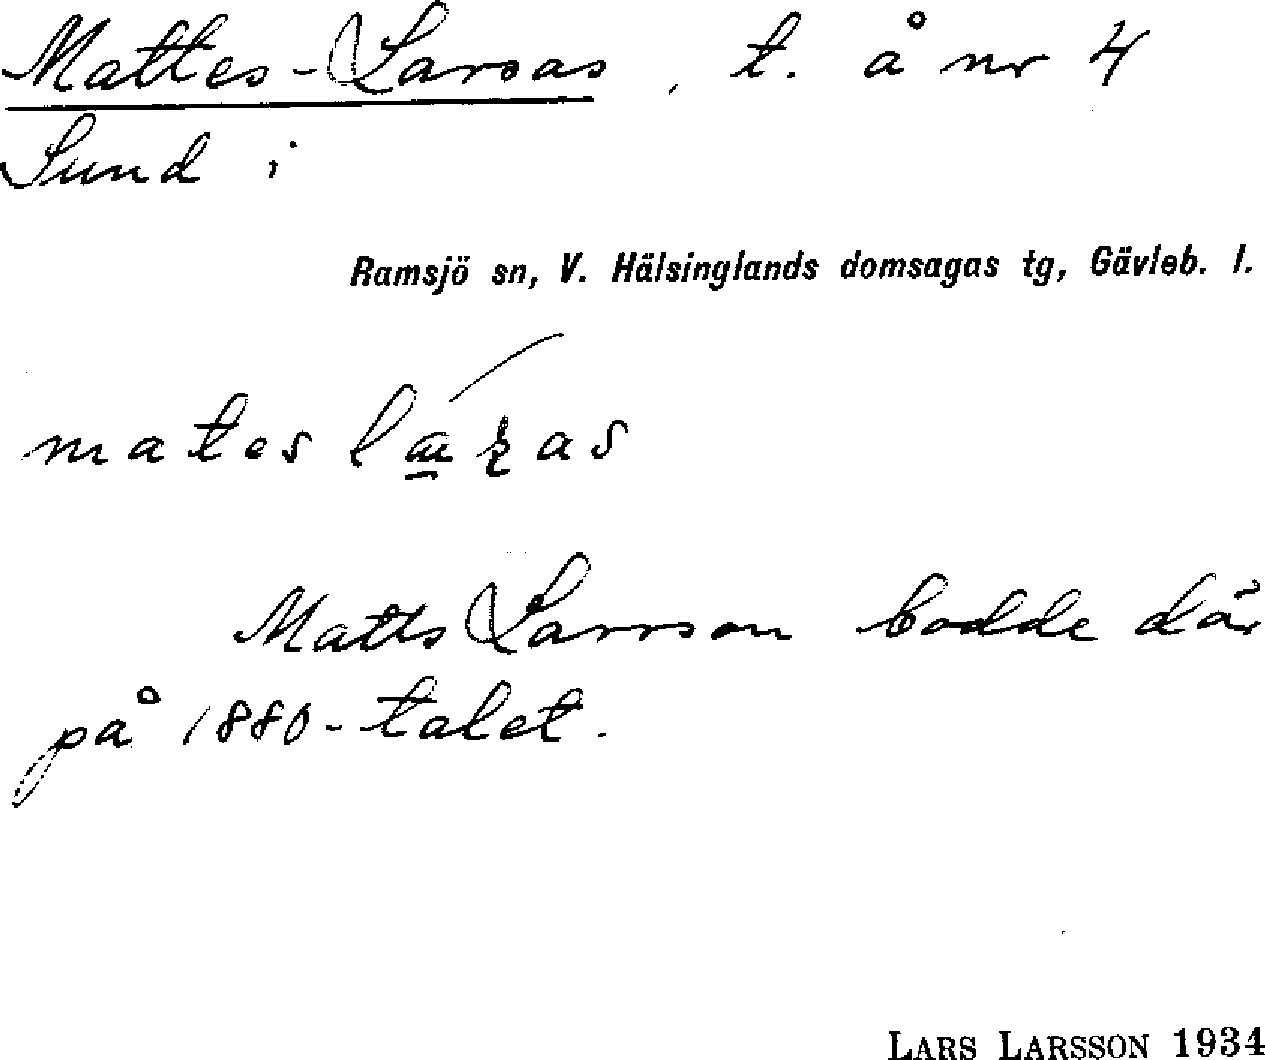 Mattes-Larsas, t. å nr 4
Sund i
Ramsjö sn, V. Hälsinglands domsagas tg, Gävleb. l.
mates
Matts Larsson bodde där
på 1880-talet.
LARS LARSSON 1934